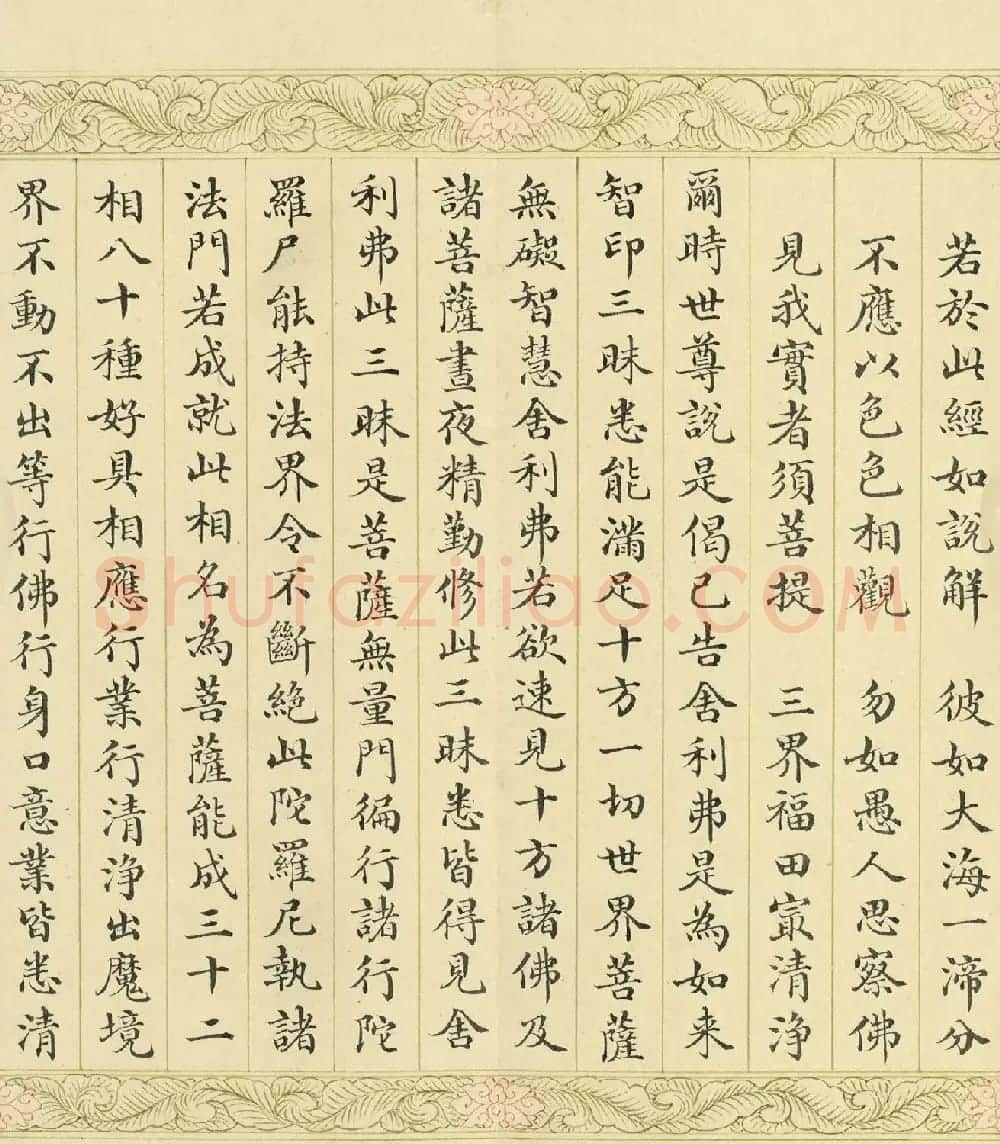 若於此經如說解　彼如大海一渧分
不應以色色相觀　勿如愚人思察佛
見我實者須菩提　三界福田㝡清浄
爾時世尊說是偈已告舍利弗是為如来
智印三昧悉能滿足十方一切世界菩薩
無礙智慧舍利弗若欲速見十方諸佛及
諸菩薩晝夜精勤修此三昧悉皆得見舍
利弗此三昧是菩薩無量門徧行諸行陀
羅尸能持法界令不斷絶此陀羅尼執諸
法門若成就此相名為菩薩能成三十二
相八十種好具相應行業行清浄出魔境
界不動不出等行佛行身口意業皆悉清
Shufaziliao.COM